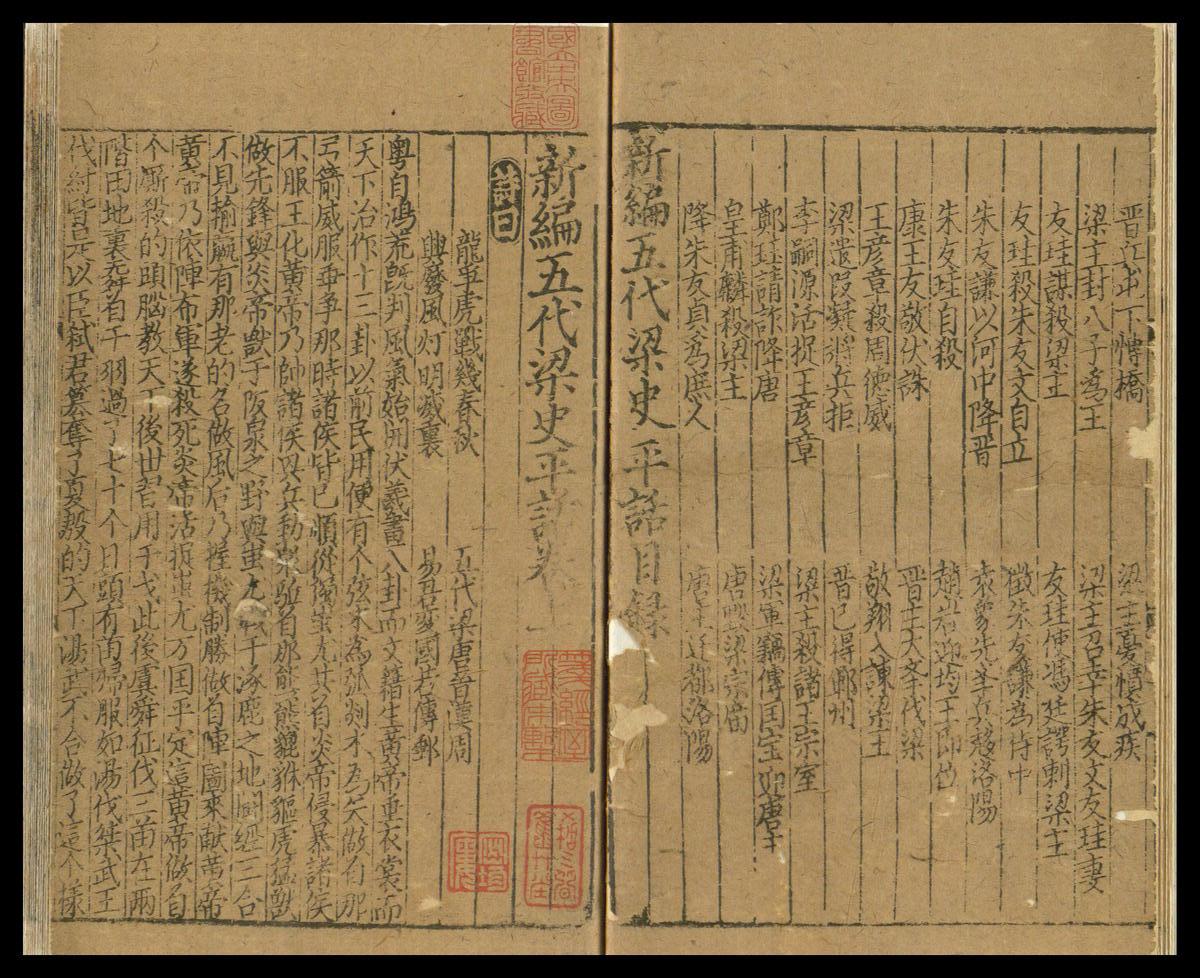 下愽橋　梁主憂憤成疾
梁主封八子爲王　梁主召幸朱友文友珪妻
友珪謀殺梁主　友珪使馮廷諤刺梁主
友珪殺朱友文自立　徵朱友謙爲侍中
朱友謙以河中降晋　袁象先等兵移洛陽
朱友珪自殺　趙岩迎均王即位
康王友敬伏誅　晋主大夆伐梁
王彦章殺周德威　敬翔入諫梁王
梁遣段凝將兵拒　晋已得鄆州
李嗣源活捉王彦章　梁主殺諸王宗室
鄭珏請詐降唐　梁軍竊傳国宝迎唐主
皇甫麟殺梁主　唐毀梁宗庙
降朱友貞爲庶人　唐主迁都洛陽
新編五代梁史平話目録
新編五代梁史平話卷上
詩曰
龍爭虎戰幾春秋　五代梁唐晋漢周
興廢風灯明滅裏　易君变國若傳郵
粤自鴻荒旣判風氣始開伏羲畫八卦而文籍生黃帝垂衣裳而
天下治作十三卦以前民用便有个弦木爲弧剡木爲矢做自那
弓箭威服乖爭那時諸侯皆已順從獨蚩尤共自炎帝侵暴諸侯
不服王化黃帝乃帥諸侯興兵動衆驅自那熊羆貔貅貙虎猛獸
做先鋒與炎帝戰于阪泉之野與蚩尤戰于涿鹿之地鬪經三合
不見輸贏有那老的名做風后乃握機制勝做自陣圖來献黃帝
黃帝乃依陣布軍遂殺死炎帝活捉蚩尤万国平定這黃帝做自
个厮殺的頭腦教天下後世習用于戈此後虞舜征伐三苗在兩
階田地裏舞自干羽過了七十个日頭有苗歸服如湯伐桀武王
伐紂皆是以臣弑君篡奪了夏殷的天下湯武不合做了這个樣